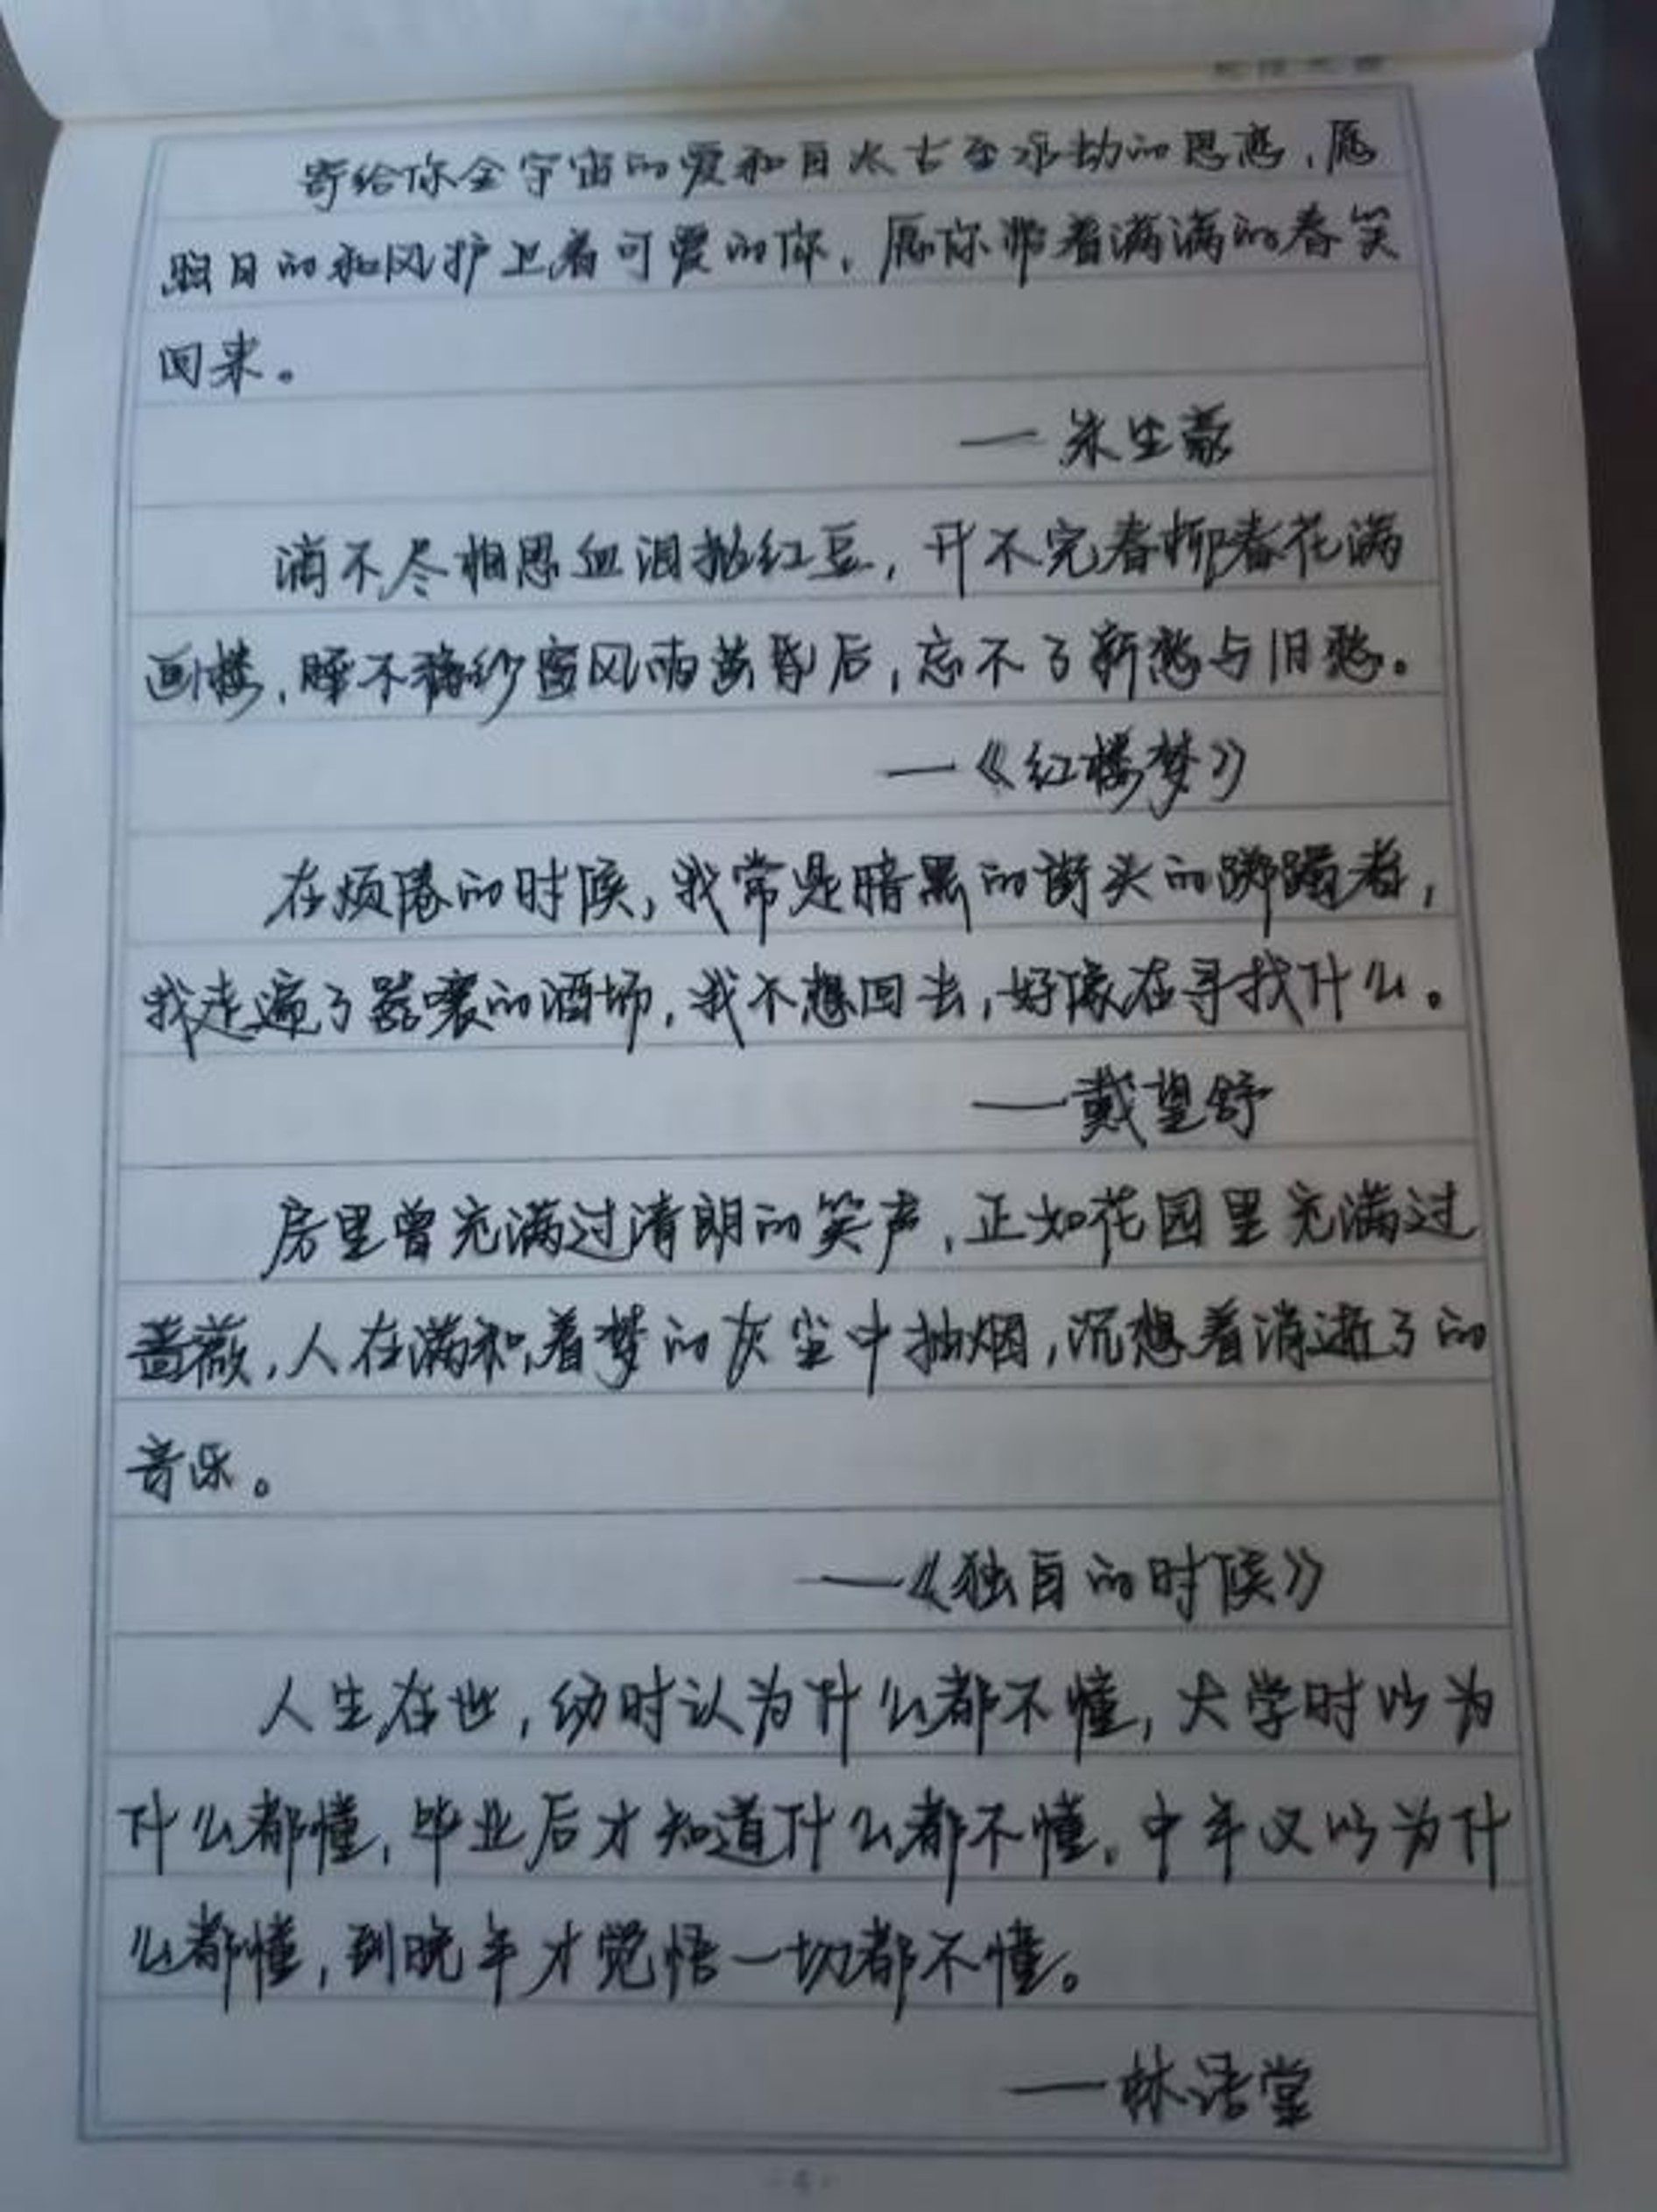 寄给你全宇宙的爱和自太古至永劫的思恋,愿
照日的和风护卫着可爱的你,愿你带着满满的春笑
回来。
—朱生豪
滴不尽相思血泪抛红豆,开不完春柳春花满
画楼,睡不稳纱窗风雨黄昏后,忘不了新愁与旧愁。
—《红楼梦》
在烦倦的时候,我常是暗黑的街头的踯躅者,
我走遍了嚣嚷的酒场,我不想回去,好像在寻找什么。
—戴望舒
房里曾充满过清朗的笑声,正如花园里充满过
蔷薇,人在满积着梦的灰尘中抽烟,沉想着消逝了的
音乐。
—《独自的时候》
人生在世,幼时认为什么都不懂,大学时以为
什么都懂,毕业后才知道什么都不懂,中年又以为什
么都懂,到晚年才觉悟一切都不懂。
—林语堂
- 4 -